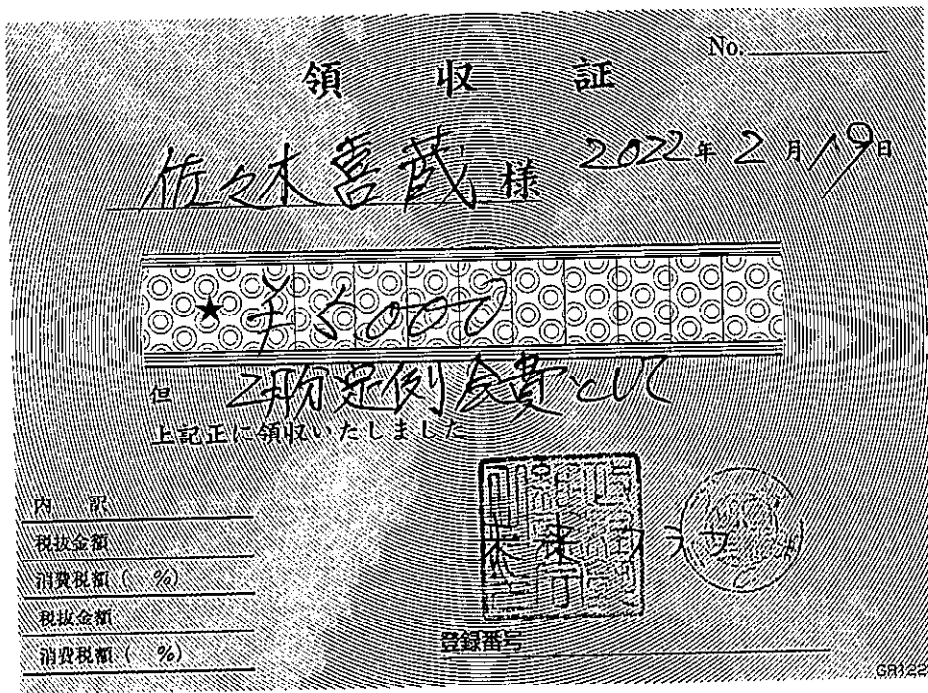 No.
領収証
佐々木喜蔵様
2022年2月19日
★ ¥5,000
但 2月分定例会費として
上記正に領収いたしました
内訳
税抜金額
消費税額( %)
税抜金額
消費税額( %)
未来クラブ
登録番号
GR122